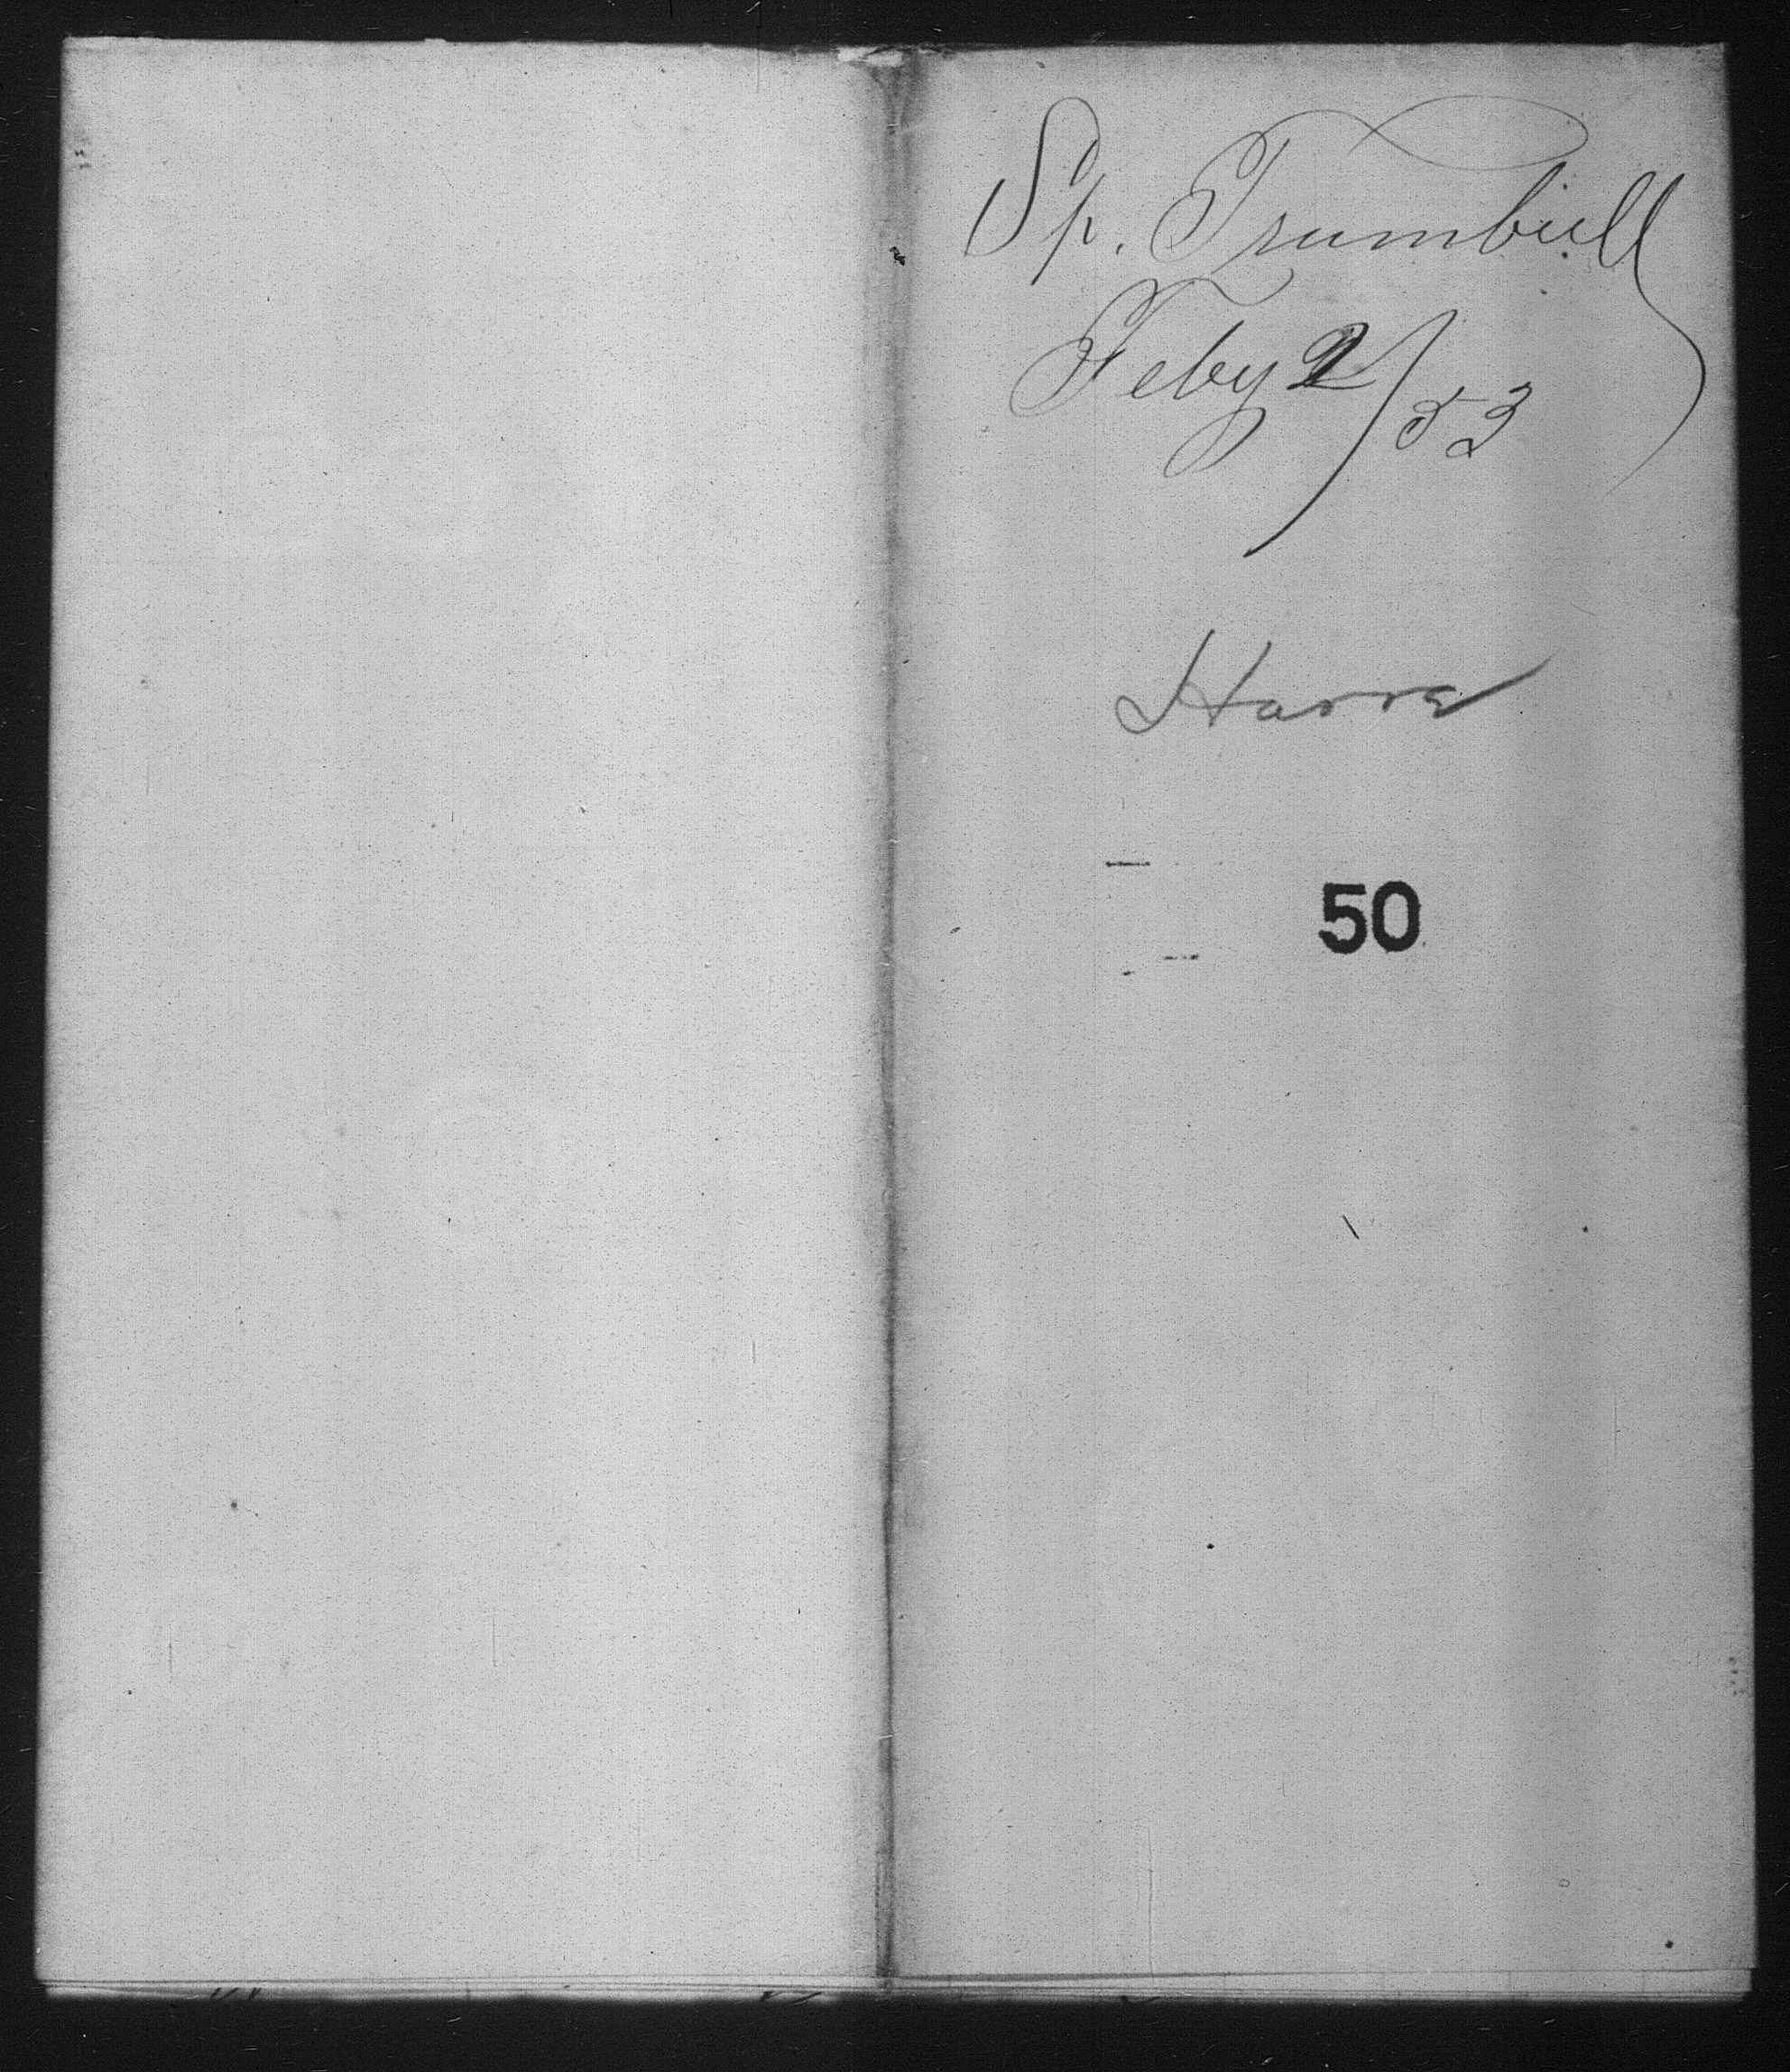 Sp. Trumbull
Feby 2/53
Havre
50